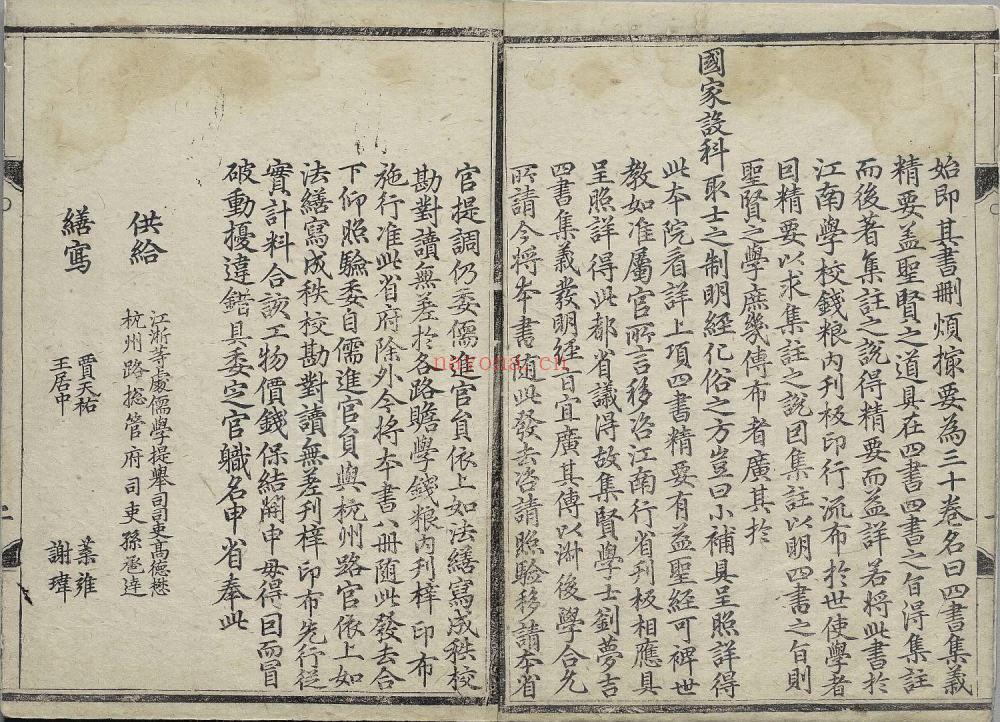 始即其書刪煩撮要為三十卷名曰四書集義
精要盖聖賢之道具在四書四書之旨得集註
而後著集註之說得精要而益詳若將此書於
江南學校錢粮內刊板印行流布於世使學者
因精要以求集註之說因集註以明四書之旨則
聖賢之學庶幾傳布者廣其於
國家設科取士之制明經化俗之方豈曰小補具呈照詳得
此本院看詳上項四書精要有益聖經可裨世
教如准屬官所言移咨江南行省刊板相應具
呈照詳得此都省議得故集賢學士劉夢吉
四書集義發明經旨宜廣其傳以淑後學合允
所請今將本書隨此發去咨請照驗移請本省
官提調仍委儒進官員依上如法繕寫成秩校
勘對讀無差於各路贍學錢粮內刊梓印布
施行准此省府除外今將本書八冊随此發去合
下仰照驗委自儒進官員與杭州路官依上如
法繕寫成秩校勘對讀無差刊梓印布先行從
實計料合該工物價錢保結開申毋得因而冒
破動擾違錯具委定官職名申省奉此
供給
江浙等處儒學提舉司司吏高德懋
杭州路捴管府司吏孫丞逹
繕寫
賈天祐
王居中
葉雍
謝瑋
nayona.cn